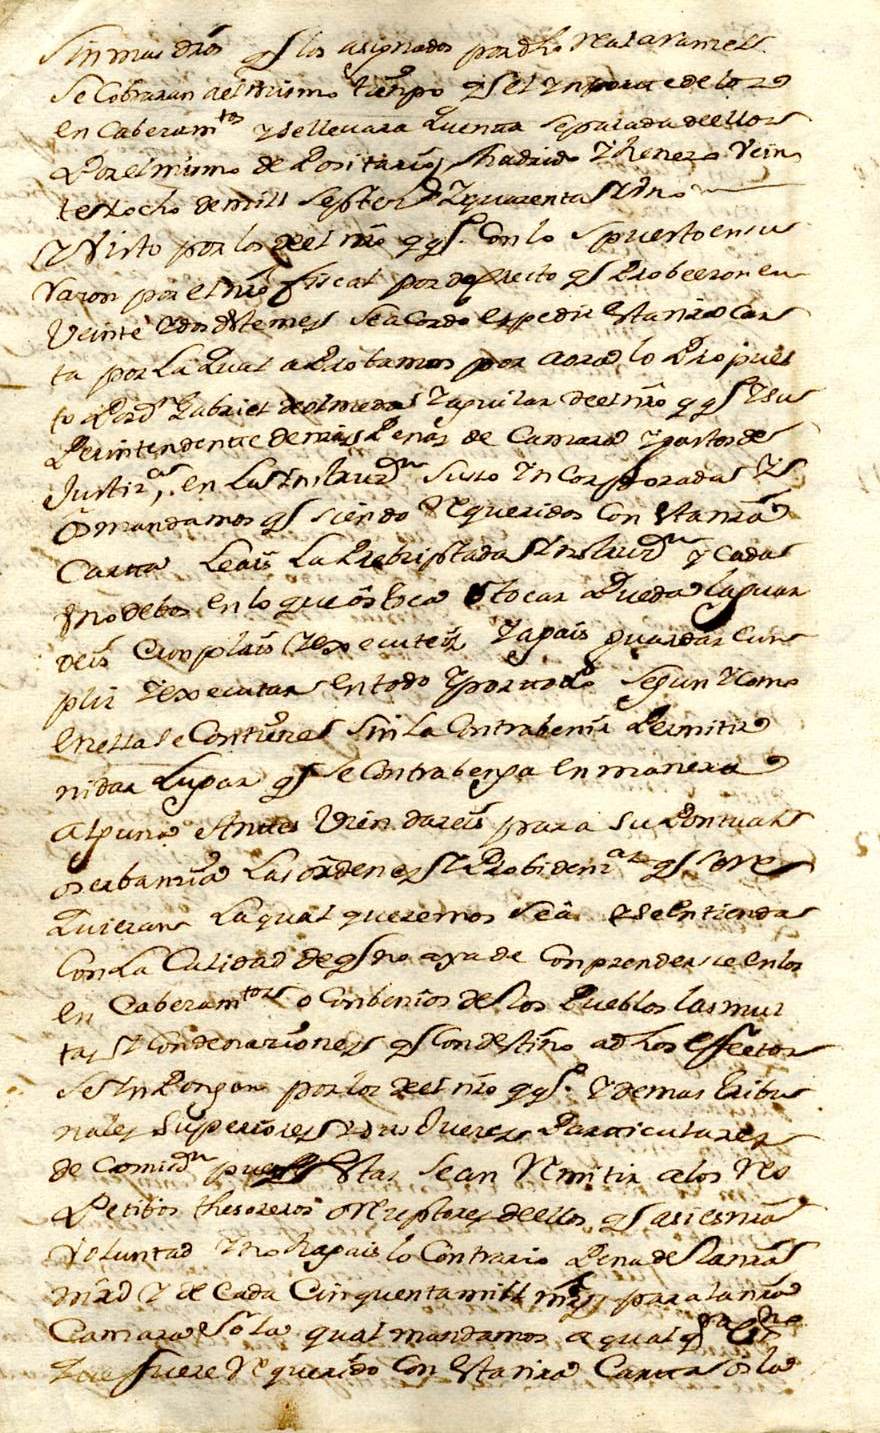 sin mas dros qe los asignados por dho Real aranzel
se Cobraran al mismo tienpo qe el ynporte de los
en Cabezamtos y se llevara quenta separada dellos
por el mismo depositario, Madrid y henero Vein
te y ocho de mill septezs y quarenta y uno
y Visto por los del nro qqo. Con lo espuesto en su
razon por el nro fiscal por decreto qe probeieron en
Veinte y dos deste mes se acordo expedir esta nra Car
ta por La qual aprobamos por aora lo propues
to por Dn Gabriel de olmeda y aguilar del nro qqo y su
perintendente de mis penas de Camara y gastos de
Justizas, en Las Instruznes suso yncorporadas y
os mandamos qe siendo Requeridos Con esta nra
Carta Leais La prebynsertada Instruzn y cada
vno de bos en lo que os toca o tocar pueda la guar
deis Cunplais y executeis y agais guardar Cun
plir y executar en todo y por todo segun y como
en ella se Contiene sin la Contrabenir permitir
ni dar Lugar qe se Contrabenga en manera
alguna antes Vien dareis para su pontual
oserbanzia Las ordenes y probidenzas qe se re
quieran La qual queremos sea y se entienda
Con La Calidad de qe no aya de Conprenderse en los
en Cabezamtos o Conbenios de los pueblos las mul
tas y Condenaziones qe Con destino a dhos effectos
se inpongan por los del nro qqo. y demas tribu
nales superiores y de Juezes particulares
de Comisn pues estas se an de Remitir a los Res
petibos thesoreros o rezeptores dellos, qe asi es nra
Voluntad y no hagais lo Contrario pena de la nra
mrd y de Cada Cinquenta mill mrs para la nra
Camara so la qual mandamos a qualqra esno
que fuere Requerido Con esta nra Carta os la